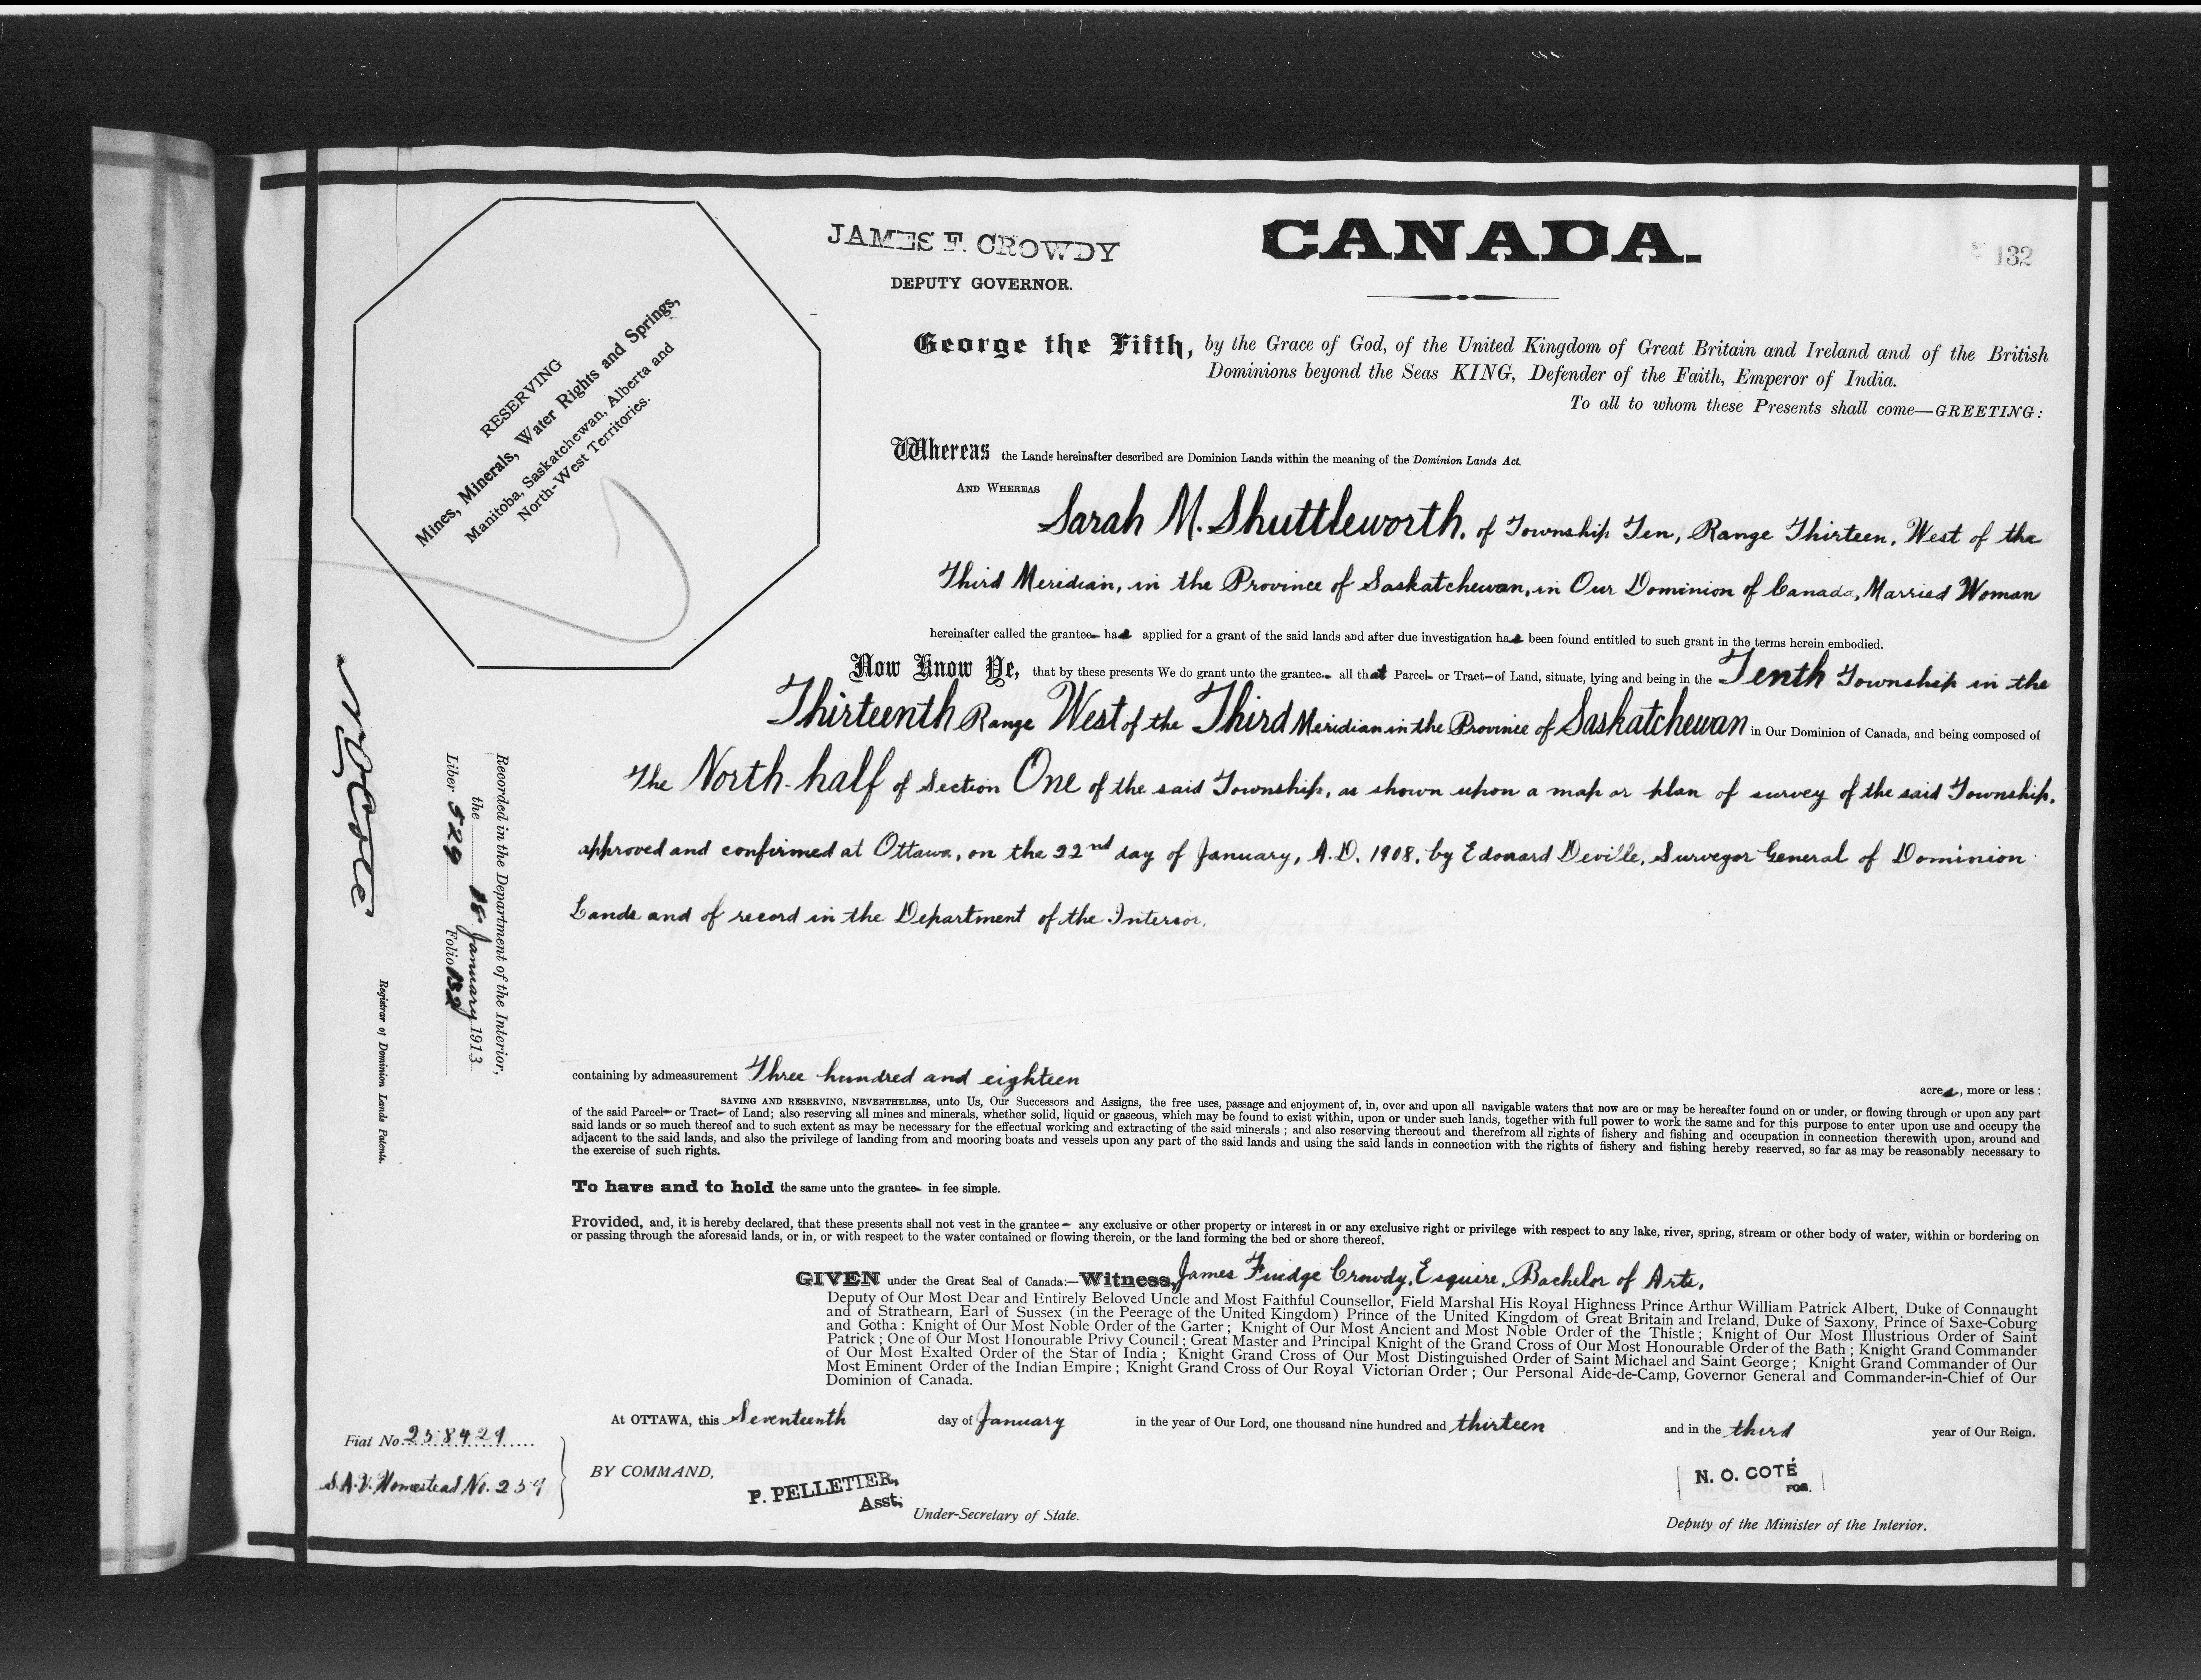 JAMES F. CROWDY
DEPUTY GOVERNOR.
CANADA.
132
RESERVING
Mines, Minerals, Water Rights and Springs,
Manitoba, Saskatchewan, Alberta and
North-West Territories.
George the Fifth, by the Grace of God, of the United Kingdom of Great Britain and Ireland and of the British
Dominions beyond the Seas KING, Defender of the Faith, Emperor of India.
To all to whom these Presents shall come—GREETING:
Whereas the Lands hereinafter described are Dominion Lands within the meaning of the Dominion Lands Act.
AND WHEREAS
Sarah M. Shuttleworth, of Township Ten, Range Thirteen, West of the
Third Meridian, in the Province of Saskatchewan, in Our Dominion of Canada, Married Woman
hereinafter called the grantee has applied for a grant of the said lands and after due investigation has been found entitled to such grant in the terms herein embodied.
Now Know Ye, that by these presents We do grant unto the grantee all that Parcel or Tract of Land, situate, lying and being in the Tenth Township in the
Thirteenth Range West of the Third Meridian in the Province of Saskatchewan in Our Dominion of Canada, and being composed of
The North-half of Section One of the said Township, as shown upon a map or plan of survey of the said Township,
approved and confirmed at Ottawa, on the 22nd day of January, A.D. 1908, by Edouard Deville, Surveyor General of Dominion
Lands and of record in the Department of the Interior.
containing by admeasurement Three hundred and eighteen acres, more or less:
SAVING AND RESERVING, NEVERTHELESS, unto Us, Our Successors and Assigns, the free uses, passage and enjoyment of, in, over and upon all navigable waters that now are or may be hereafter found on or under, or flowing through or upon any part
of the said Parcel or Tract of Land; also reserving all mines and minerals, whether solid, liquid or gaseous, which may be found to exist within, upon or under such lands, together with full power to work the same and for this purpose to enter upon use and occupy the
said lands or so much thereof and to such extent as may be necessary for the effectual working and extracting of the said minerals; and also reserving thereout and therefrom all rights of fishery and fishing and occupation in connection therewith upon, around and
adjacent to the said lands, and also the privilege of landing from and mooring boats and vessels upon any part of the said lands and using the said lands in connection with the rights of fishery and fishing hereby reserved, so far as may be reasonably necessary to
the exercise of such rights.
To have and to hold the same unto the grantee in fee simple.
Provided, and, it is hereby declared, that these presents shall not vest in the grantee any exclusive or other property or interest in or any exclusive right or privilege with respect to any lake, river, spring, stream or other body of water, within or bordering on
or passing through the aforesaid lands, or in, or with respect to the water contained or flowing therein, or the land forming the bed or shore thereof.
GIVEN under the Great Seal of Canada:—Witness, James Fudge Crowdy, Esquire, Bachelor of Arts,
Deputy of Our Most Dear and Entirely Beloved Uncle and Most Faithful Counsellor, Field Marshal His Royal Highness Prince Arthur William Patrick Albert, Duke of Connaught
and of Strathearn, Earl of Sussex (in the Peerage of the United Kingdom) Prince of the United Kingdom of Great Britain and Ireland, Duke of Saxony, Prince of Saxe-Coburg
and Gotha: Knight of Our Most Noble Order of the Garter; Knight of Our Most Ancient and Most Noble Order of the Thistle; Knight of Our Most Illustrious Order of Saint
Patrick; One of Our Most Honourable Privy Council; Great Master and Principal Knight of the Grand Cross of Our Most Honourable Order of the Bath; Knight Grand Commander
of Our Most Exalted Order of the Star of India; Knight Grand Cross of Our Most Distinguished Order of Saint Michael and Saint George; Knight Grand Commander of Our
Most Eminent Order of the Indian Empire; Knight Grand Cross of Our Royal Victorian Order; Our Personal Aide-de-Camp, Governor General and Commander-in-Chief of Our
Dominion of Canada.
At OTTAWA, this Seventeenth day of January in the year of Our Lord, one thousand nine hundred and thirteen and in the third year of Our Reign.
BY COMMAND,
P. PELLETIER,
Asst.
Under-Secretary of State.
N. O. COTÉ
FOR.
Deputy of the Minister of the Interior.
Fiat No. 258429
S.A.V. Homestead No. 259
Recorded in the Department of the Interior,
the 18 January 1913
Liber 529 Folio 132
N O Coté
Registrar of Dominion Lands Patents.